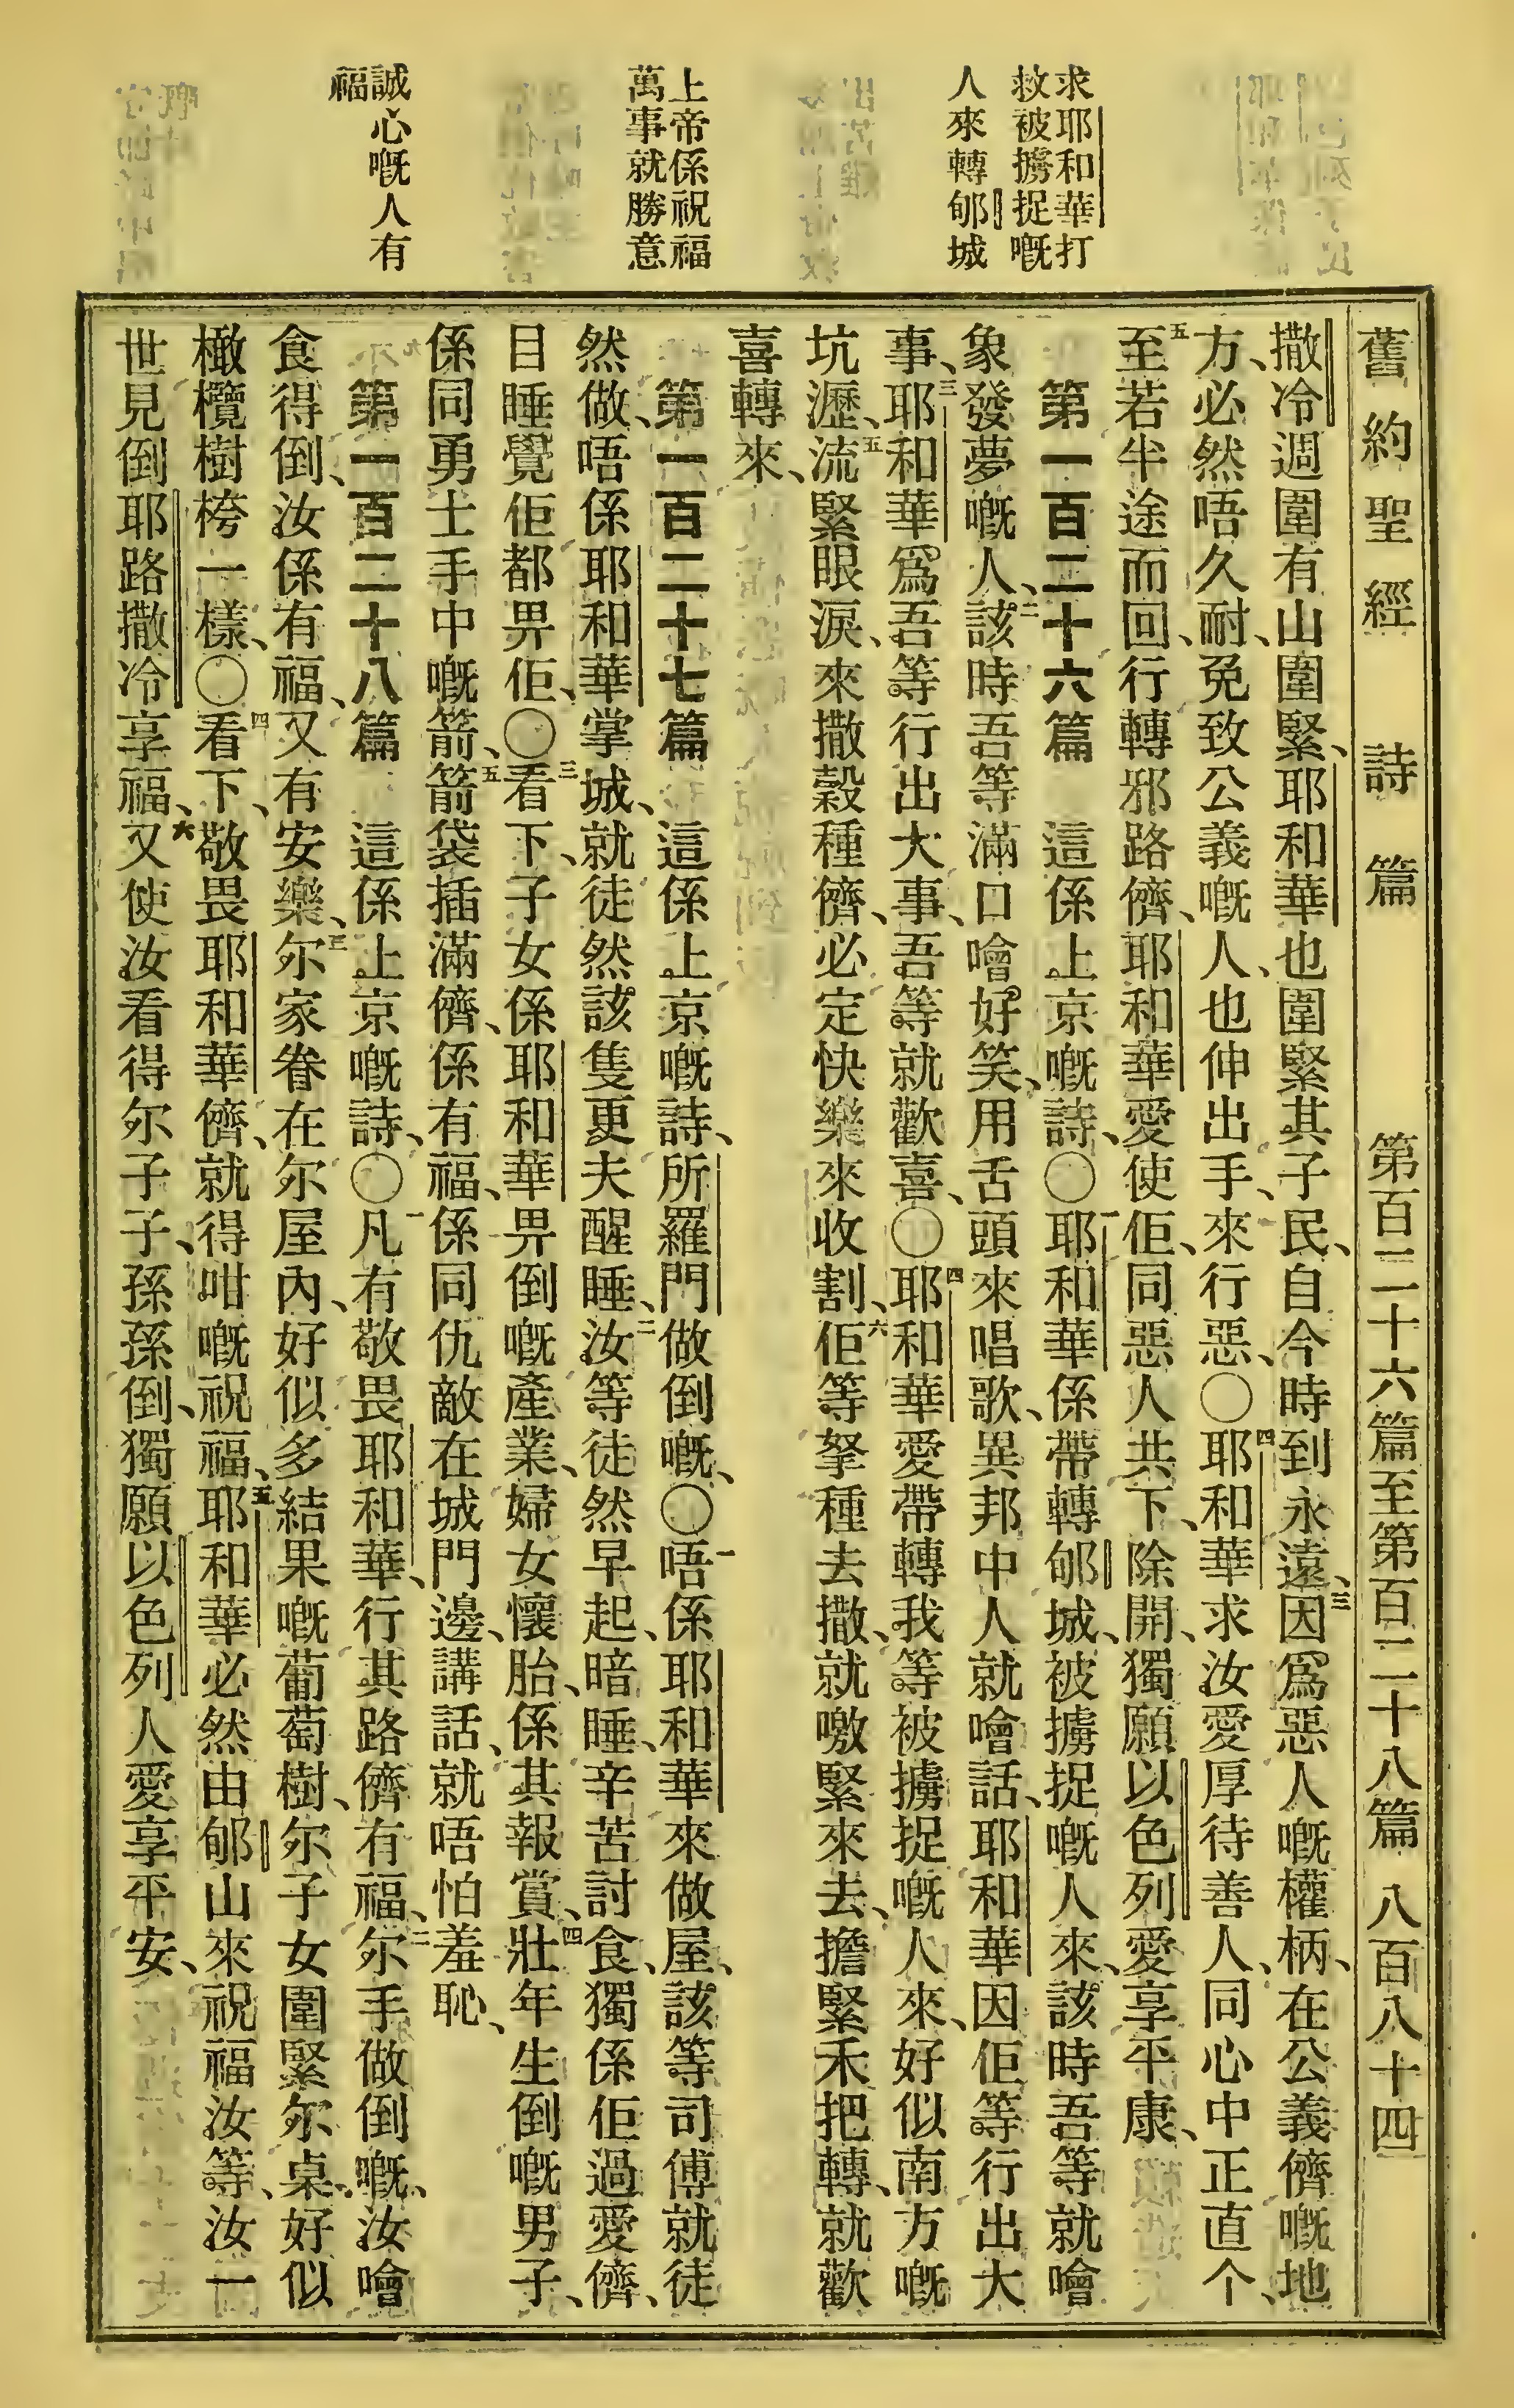 求耶和華打
救被擄捉嘅
人來轉郇城
上帝係祝福
萬事就勝意
誠心嘅人有
福
舊約聖經 詩篇 第百二十六篇至第百二十八篇 八百八十四
撒冷週圍有山圍緊、耶和華也圍緊其子民、自今時到永遠、三因爲惡人嘅權柄、在公義儕嘅地
方、必然唔久耐、免致公義嘅人、也伸出手、來行惡、○四耶和華求汝愛厚待善人、同心中正直个、
五至若半途而回、行轉邪路儕、耶和華愛使佢、同惡人共下、除開、獨願以色列愛享平康、
第一百二十六篇 這係上京嘅詩、○一耶和華係帶轉郇城、被擄捉嘅人來、該時吾等就噲
象發夢嘅人、二該時吾等滿口噲好笑、用舌頭來唱歌、異邦中人就噲話、耶和華因佢等行出大
事、三耶和華爲吾等行出大事、吾等就歡喜、○四耶和華愛帶轉我等被擄捉嘅人來、好似南方嘅
坑瀝、五流緊眼淚、來撒穀種儕、必定快樂來收割、六佢等拏種去撒、就噭緊來去、擔緊禾把轉、就歡
喜轉來、
第一百二十七篇 這係上京嘅詩、所羅門做倒嘅、○一唔係耶和華來做屋、該等司傅就徒
然做、唔係耶和華掌城、就徒然該隻更夫醒睡、二汝等徒然早起、暗睡、辛苦討食、獨係佢過愛儕、
目睡覺佢都畀佢、○三看下、子女係耶和華畀倒嘅產業、婦女懷胎、係其報賞、四壯年生倒嘅男子、
係同勇士手中嘅箭、五箭袋插滿儕、係有福、係同仇敵在城門邊、講話、就唔怕羞恥、
第一百二十八篇 這係上京嘅詩、○一凡有敬畏耶和華、行其路儕有福、二尔手做倒嘅、汝噲
食得倒、汝係有福、又有安樂、三尔家眷在尔屋內、好似多結果嘅葡萄樹、尔子女圍緊尔桌、好似
橄欖樹桍一樣、○四看下、敬畏耶和華儕、就得咁嘅祝福、五耶和華必然由郇山來祝福汝等、汝一
世見倒耶路撒冷享福、六又使汝看得尔子子、孫孫倒、獨願以色列人愛享平安、